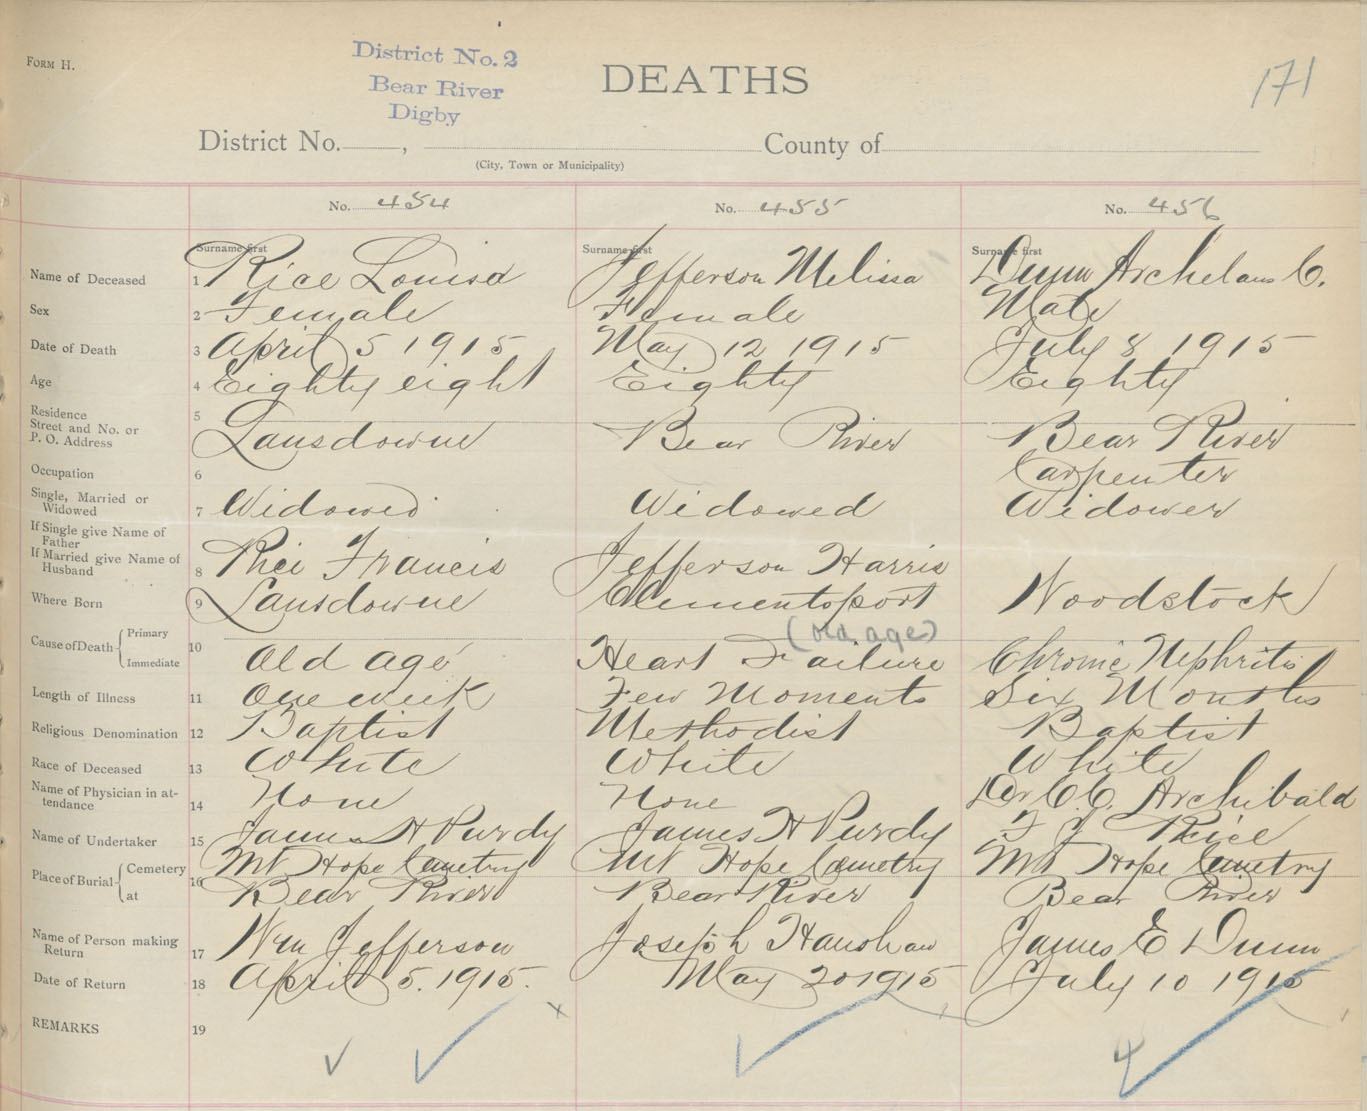 FORM H.
District No. 2
Bear River
Digby
DEATHS
171
District No. , County of
(City, Town or Municipality)
No. 454 No. 455 No. 456
Surname first Surname first Surname first
Name of Deceased 1 Rice Louisa Jefferson Melissa Dunn Archelaus C.
Sex 2 Female Female Male
Date of Death 3 April 5 1915 May 12 1915 July 8 1915
Age 4 Eighty eight Eighty Eighty
Residence
Street and No. or
P. O. Address 5 Lansdowne Bear River Bear River
Occupation 6 Carpenter
Single, Married or
Widowed 7 Widowed Widowed Widower
If Single give Name of
Father
If Married give Name of
Husband 8 Rice Francis Jefferson Harris
Where Born 9 Lansdowne Clementsport Woodstock
(old age)
Cause of Death { Primary
Immediate 10 Old age Heart Failure Chronic Nephritis
Length of Illness 11 One week Few Moments Six Months
Religious Denomination 12 Baptist Methodist Baptist
Race of Deceased 13 White White White
Name of Physician in at-
tendance 14 None None Dr Archibald
Name of Undertaker 15 James H Purdy James H Purdy Rice
Place of Burial { Cemetery Mt Hope Cemetry Mt Hope Cemetry Mt Hope Cemetry
at 16 Bear River Bear River Bear River
Name of Person making
Return 17 Wm Jefferson Joseph Hanshaw James E Dunn
Date of Return 18 April 5. 1915. May 20 1915 July 10 1915
REMARKS 19